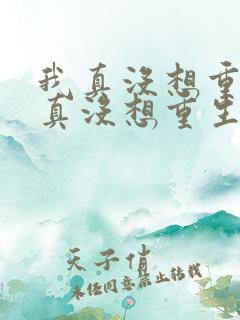 我真没想重
真没想重生
天子俏
未经同意禁止转载